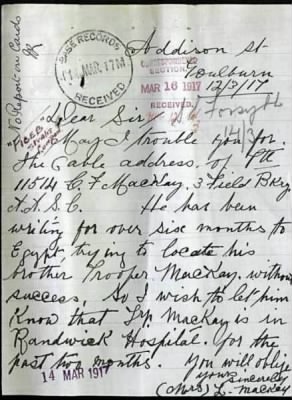 Addison St
Goulburn
12/3/17
No Report on Cards
BASE RECORDS
14 MAR. 17 M
RECEIVED
CORRESPONDENCE
SECTION
MAR 16 1917
RECEIVED
Dear Sir
Forsyth
14/3
May I trouble you for
the Cable address, of
11514 C. F. MacKay, 3 Field Bkry
A.A.S.C. He has been
writing for over six months to
Egypt, trying to locate his
brother Trooper MacKay, without
success, So I wish to let him
Know that Trp. MacKay is in
Randwick Hospital. for the
past two months. You will oblige
yours sincerely
(Mrs) L. MacKay
14 MAR 1917